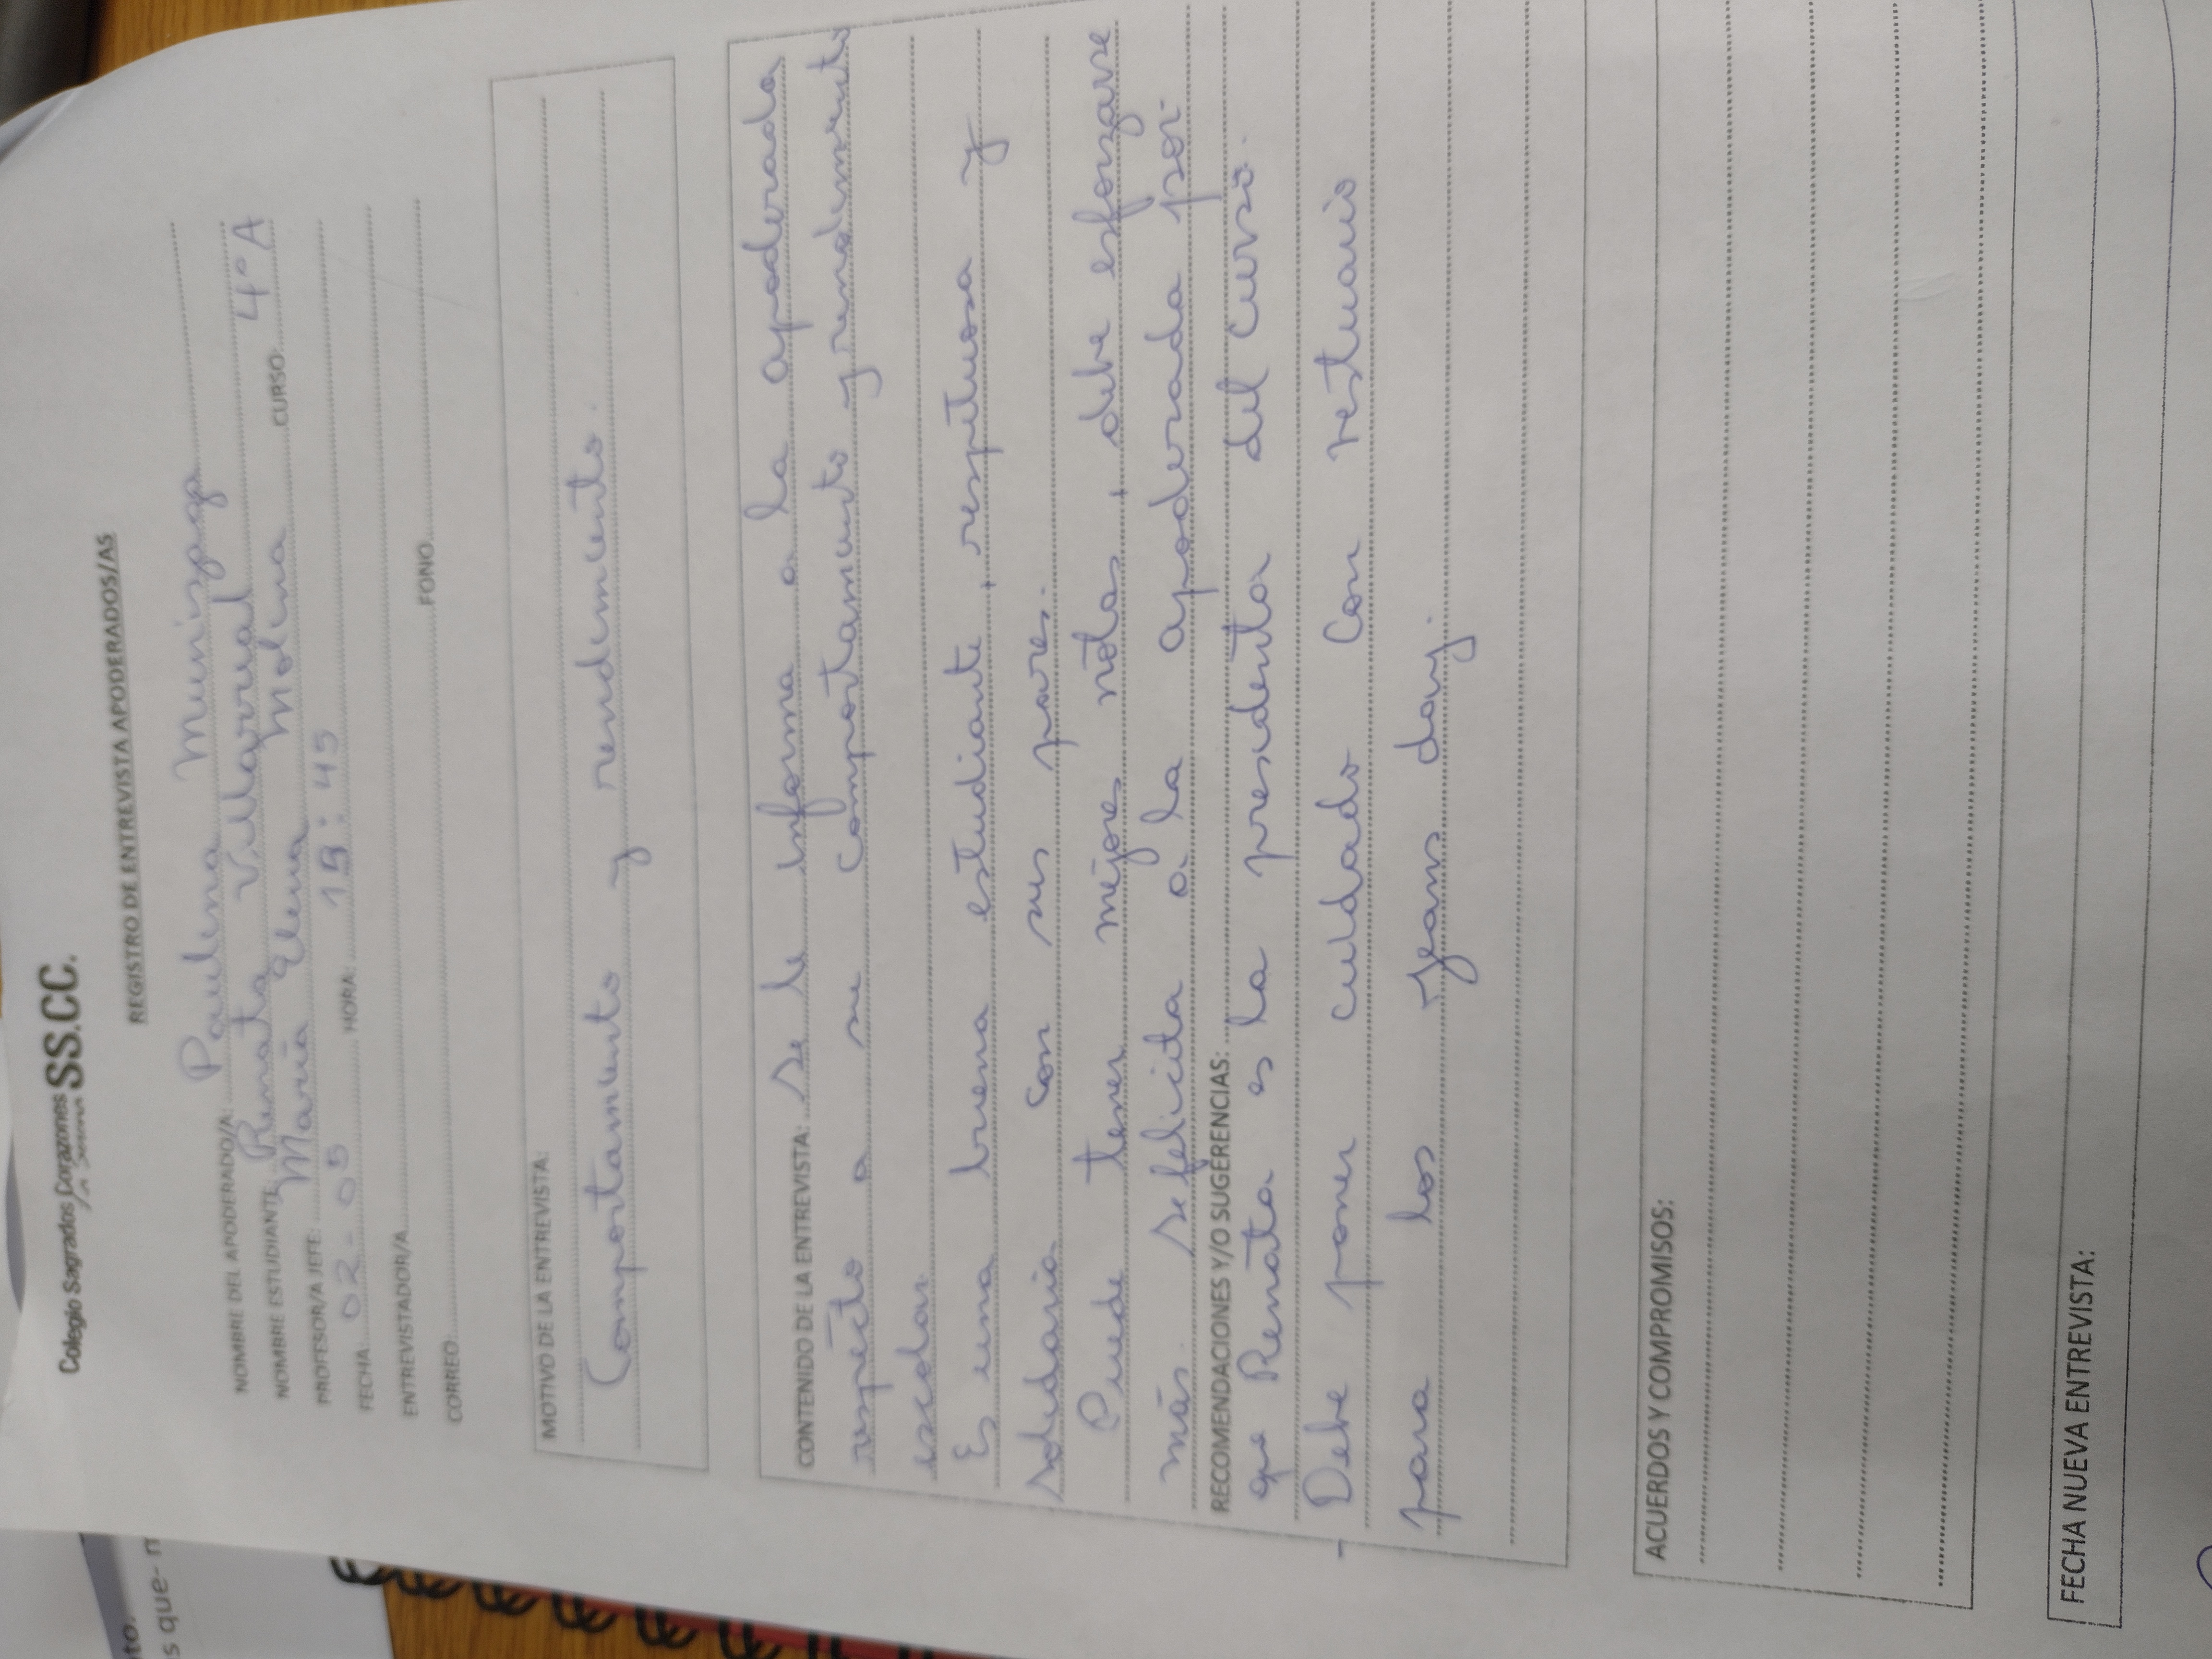 Colegio Sagrados Corazones SS.CC.
REGISTRO DE ENTREVISTA APODERADOS/AS
NOMBRE DEL APODERADO/A: Paulina Munizaga
NOMBRE ESTUDIANTE: Renata Villarrual CURSO 4°A
PROFESOR/A JEFE: María Elena Molina
FECHA: 02-05 HORA: 15:45
ENTREVISTADOR/A
CORREO: FONO
MOTIVO DE LA ENTREVISTA:
Comportamiento y rendimiento.
CONTENIDO DE LA ENTREVISTA: Se le informa a la apoderada
respecto a su comportamiento y rendimiento
escolar
Es una buena estudiante, respetuosa y
solidaria con sus pares.
Puede tener mejores notas, debe esforzarse
más. Se felicita a la apoderada por-
RECOMENDACIONES Y/O SUGERENCIAS:
que Renata es la presidenta del curso.
- Debe poner cuidado con vestuario
para los Jeans day.
ACUERDOS Y COMPROMISOS:
FECHA NUEVA ENTREVISTA:
nto.
s que- n